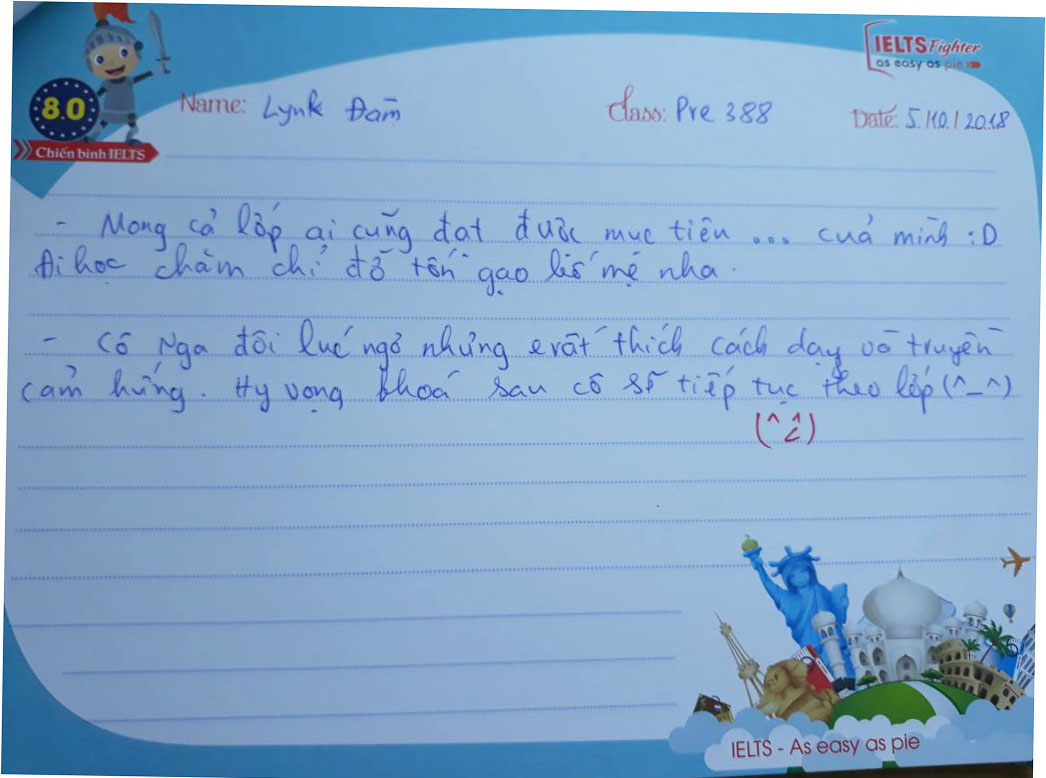 IELTS Fighter
as easy as pie
8.0
Chiến binh IELTS
Name: Lynk Đàm
Class: Pre 388
Date: 5/10/2018
- Mong cả lớp ai cũng đạt được mục tiêu ... của mình :D
Đi học chăm chỉ đỡ tốn gạo bố mẹ nha.
- Cô Nga đôi lúc ngơ nhưng e rất thích cách dạy và truyền
cảm hứng. Hy vọng khoá sau cô sẽ tiếp tục theo lớp (^_^)
IELTS - As easy as pie